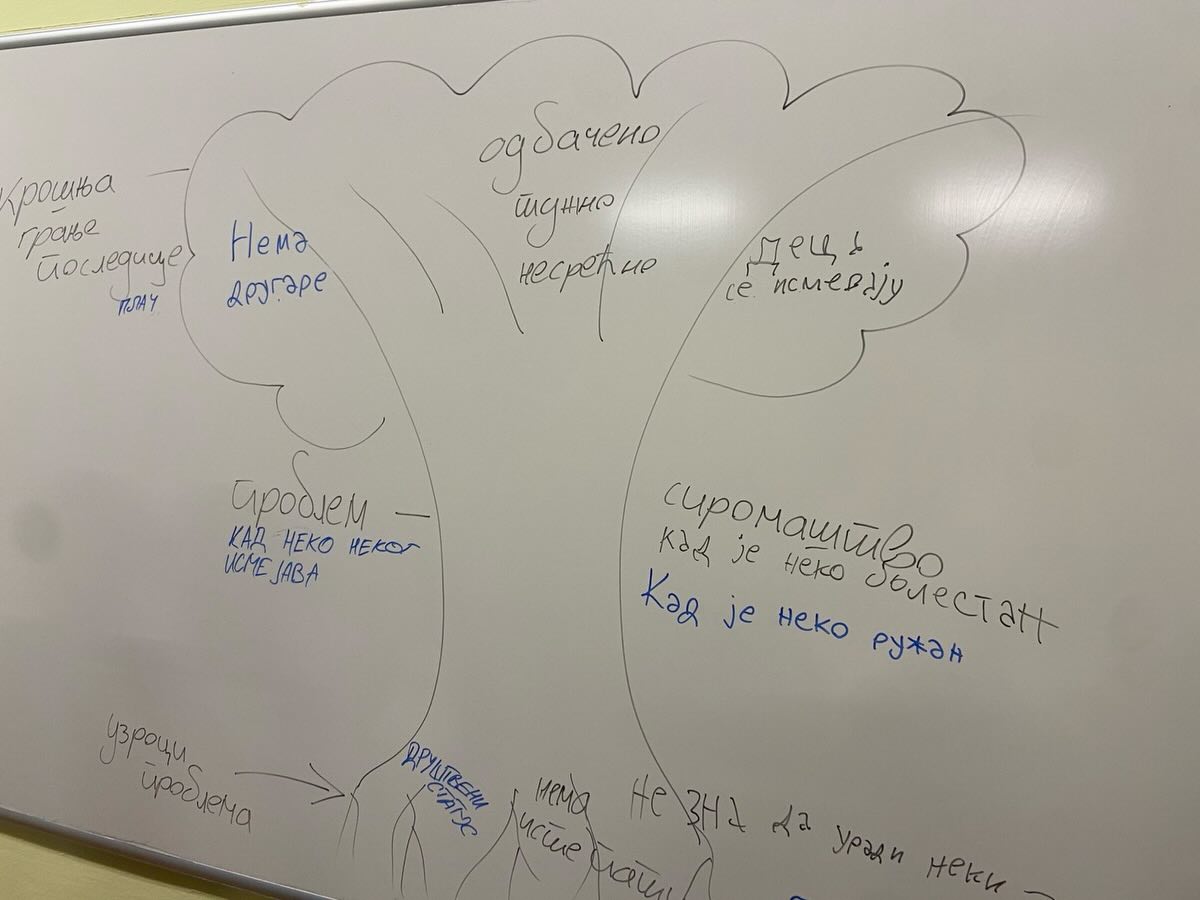 одбачено
тужно
несрећне
Крошња
грање
последице
плач
Нема
другаре
Деца
се исмевају
проблем
КАД НЕКО НЕКОГ
ИСМЕЈАВА
сиромаштво
кад је неко болестан
Кад је неко ружан
узроци
проблема
ДРУШТВЕНИ
СТАТУС
нема
исте
Не зна да уради неки